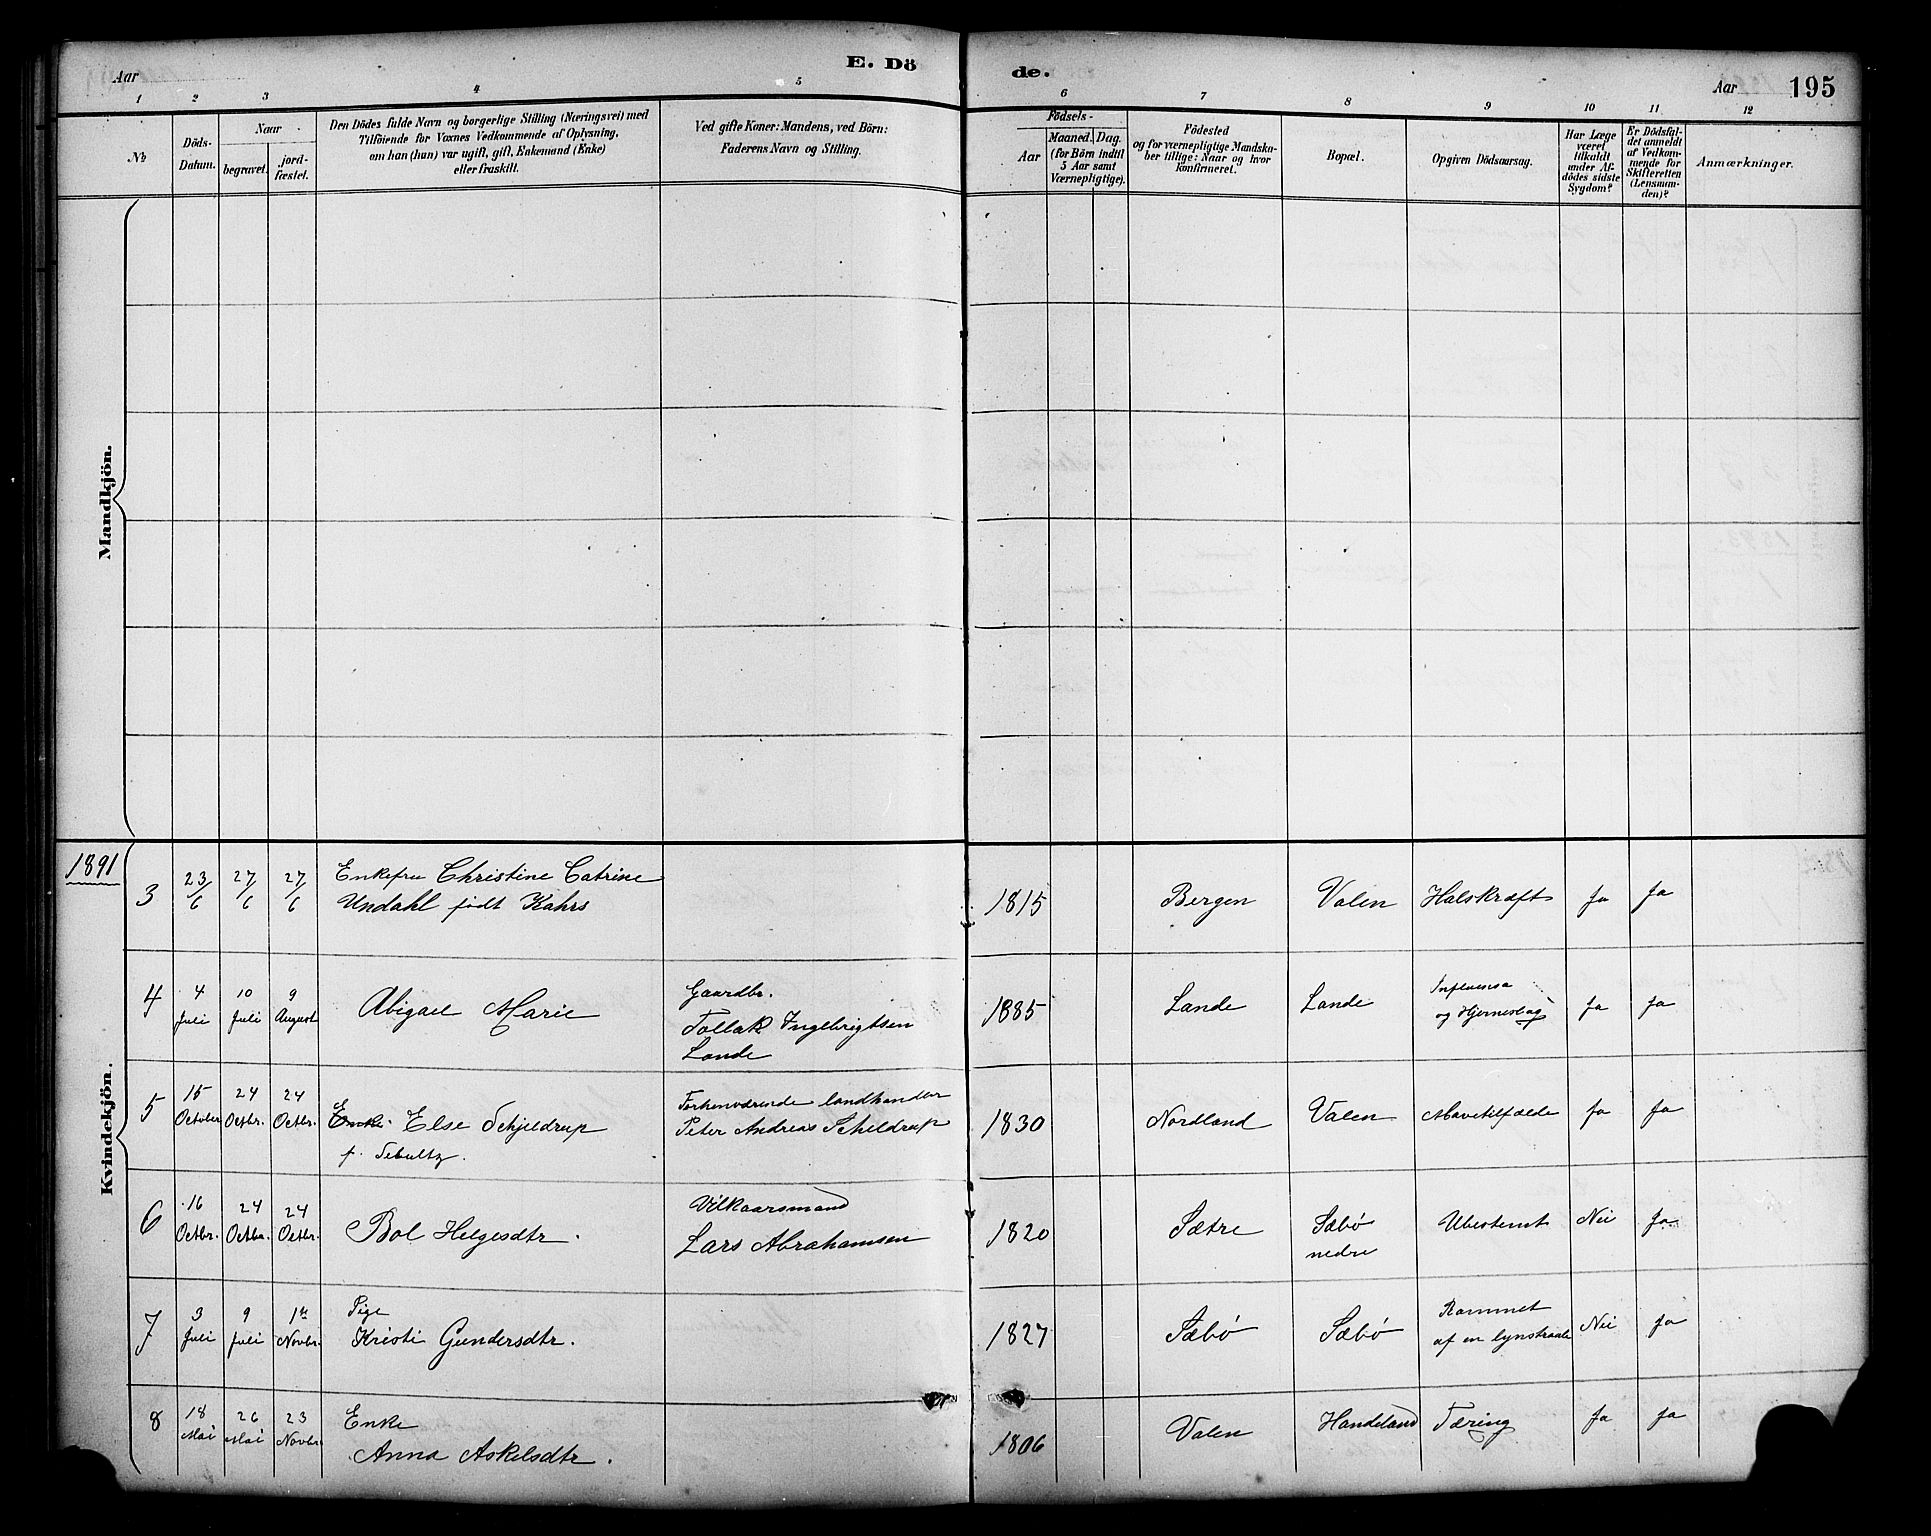 Aar
E. Dö
de.
Aar 195
1 2 3 4 5 6 7 8 9 10 11 12
No
Döds-Datum.
Naar
begravet.
jord-fæstet.
Den Dödes fulde Navn og borgerlige Stilling (Næringsvei) med
Tilföiende for Voxnes Vedkommende af Oplysning,
om han (hun) var ugift, gift, Enkemand (Enke)
eller fraskilt.
Ved gifte Koner: Mandens, ved Börn:
Faderens Navn og Stilling.
Födsels-
Aar
Maaned. Dag.
(for Börn indtil
5 Aar samt
Værnepligtige).
Födested
og for værnepligtige Mandska-
ber tillige: Naar og hvor
konfirmeret.
Bopæl.
Opgiven Dödsaarsag.
Har Læge
været
tilkaldt
under Af-
dödes sidste
Sygdom?
Er Dödsfal-
det anmeldt
af Vedkom-
mende for
Skifteretten
(Lensman-
den)?
Anmærkninger.
Mandkjön.
Kvindekjön.
1891
3 23/6 27/6 27/6 Enkefru Christine Catrine
Undahl født Kahrs 1815 Bergen Valen Halskræft Ja Ja
4 4 Juli 10 Juli 9 August Abigael Marie
Gaardbr.
Tollak Ingebrigtsen
Lande
1885 Lande Lande Influensa
og Hjerneslag Ja Ja
5 15 October 24 Octbr. 24 Octbr. Enke. Else Schjeldrup
f. Schultz.
Forhenværende landhandler
Peter Andreas Scheldrup
1830 Nordland Valen Mavetilfælde Ja Ja
6 16 Octbr. 24 Octbr. 24 Octbr. Bol Helgesdtr.
Vilkaarsmand
Lars Abrahamsen
1820 Sætre Sæbø
nedre Ubestemt Nei Ja
7 3 Juli 9 Juli 1ste Novbr. Pige
Kristi Gundersdtr. 1827 Sæbø Sæbø Rammet
af en lynstraale Nei Ja
8 18 Mai 26 Mai 23 Novbr. Enke
Anna Askelsdtr. 1806 Valen Handeland Tæring Ja Ja